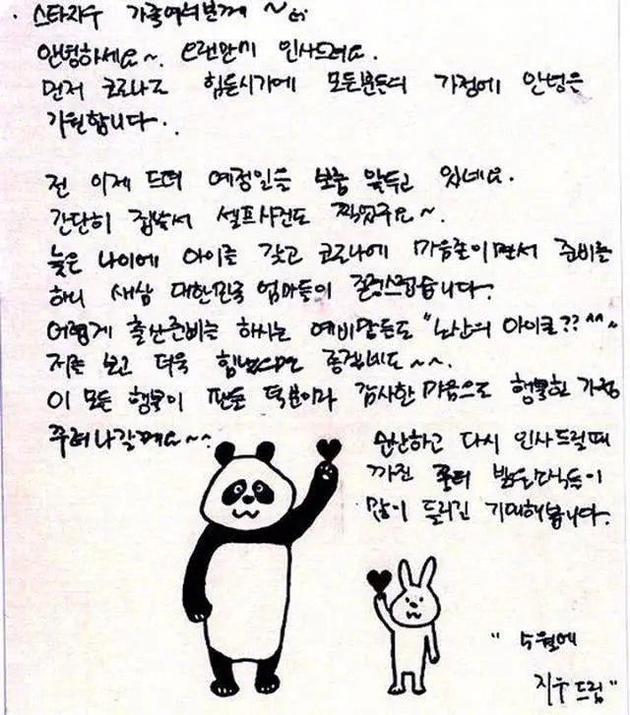 스타지우 가족여러분께 ~
안녕하세요~. 오랜만에 인사드려요.
먼저 코로나로 힘든시기에 모든분들의 가정에 안녕을
기원합니다..
전 이제 드뎌 예정일을 보름 앞두고 있네요.
간단히 집에서 셀프사진도 찍었구요~.
늦은 나이에 아이를 갖고 코로나에 마음졸이면서 준비를
하니 새삼 대한민국 엄마들이 존경스럽습니다.
어렵게 출산준비를 하시는 예비맘들도 "노산의 아이콘?? ^^~
저를 보고 더욱 힘냈으면 좋겠네요~~.
이 모든 행복이 팬들 덕분이라 감사한 마음으로 행복한 가정
꾸려나갈께요~~
순산하고 다시 인사드릴때
까진 좀더 밝은소식들이
많이 들리길 기대해봅니다.
" 5월에
지우드림 "